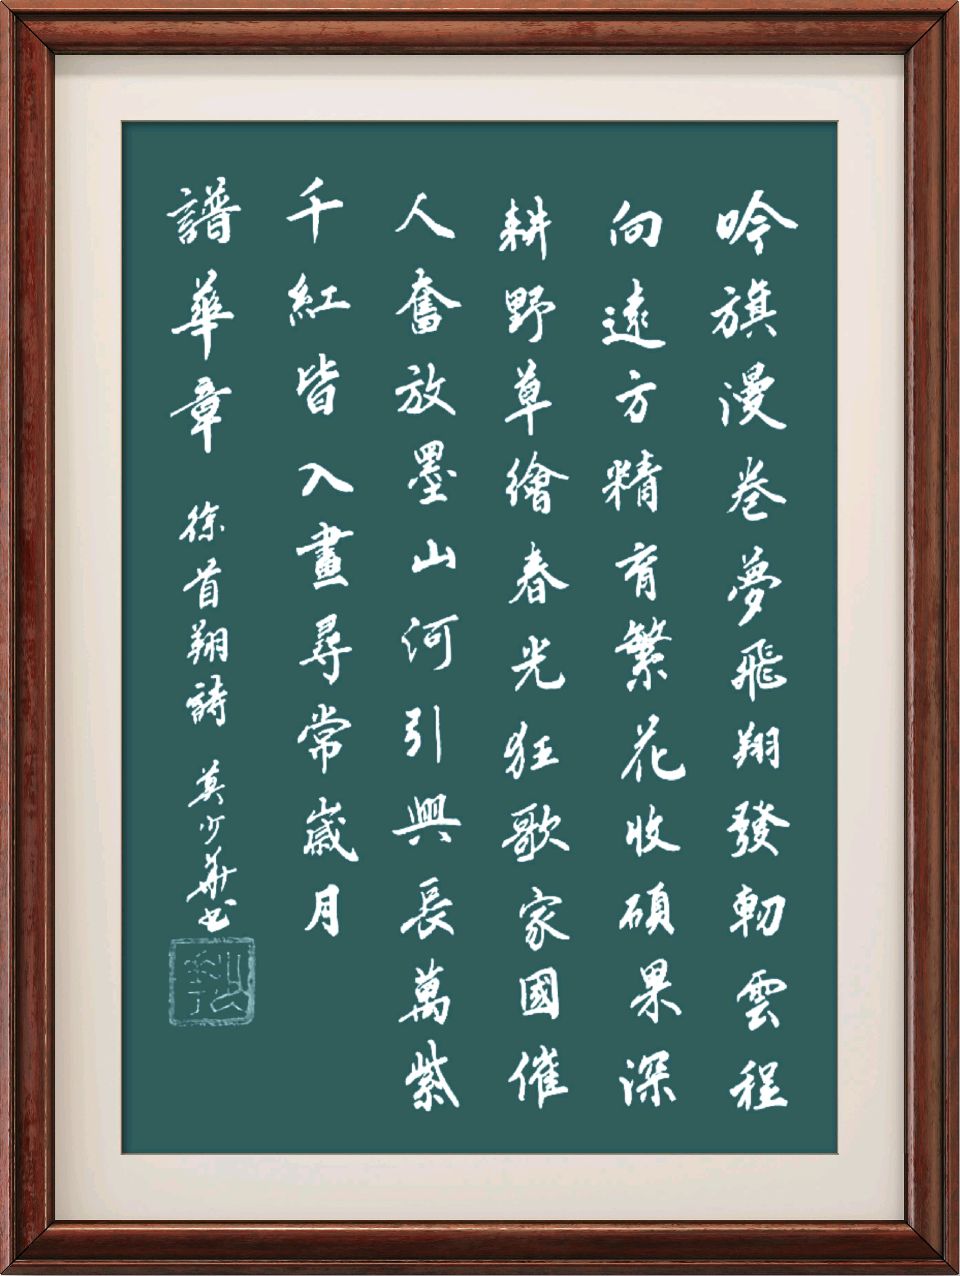 吟旗漫卷夢飛翔發軔雲程
向遠方精育繁花收碩果深
耕野草繪春光狂歌家國催
人奮放墨山河引興長萬紫
千紅皆入畫尋常歲月
譜華章 徐首翔詩 莫少華书